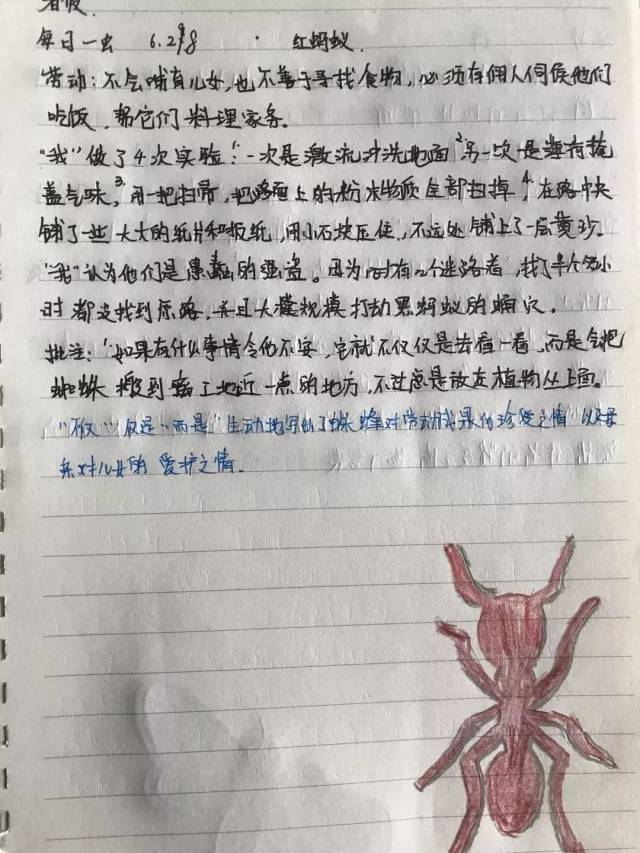 暑假
每日一虫 6.29 8 · 红蚂蚁.
劳动：不会哺育儿女,也不善于寻找食物，必须有佣人伺侯他们
吃饭．帮它们料理家务。
"我"做了4次实验：1一次是激流冲洗地面 2另一次是薄荷掩
盖气味，3用一把扫帚，把路面上的粉末物质全部扫掉，4在路中央
铺了一些大大的纸片和报纸,用小石块压住，不远处铺上了一层黄沙.
"我"认为他们是愚蠢的强盗。因为时有几个迷路者，找了半个多小
时都没找到原路，并且大模规模打动黑蚂蚁的蚁穴．
批注："如果有什么事情令他不安，它就不仅仅是去看一看，而是会把
蜘蛛搬到离了地近一点的地方，不过总是放在植物丛上面。
"不仅…仅是…而是"生动地写出了蛛蜂对劳动成果的珍爱之情以及母
亲对儿女的爱护之情.